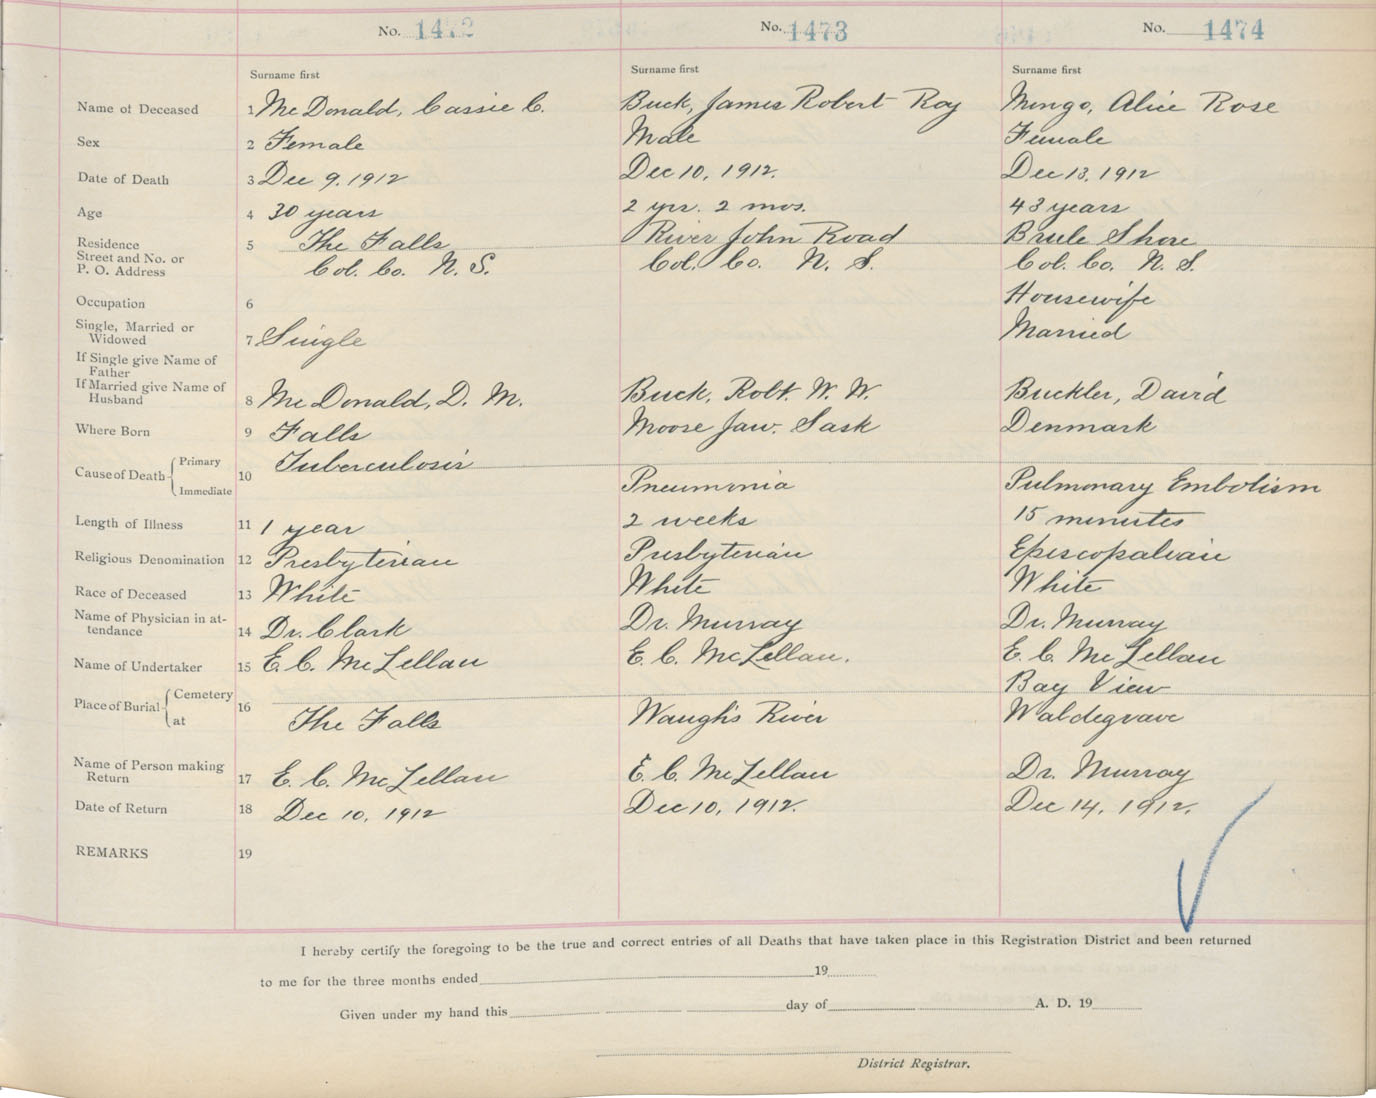 No. 1472 No. 1473 No. 1474
Surname first Surname first Surname first
Name of Deceased 1 McDonald, Cassie C. Buck, James Robert Roy Mingo, Alice Rose
Sex 2 Female Male Female
Date of Death 3 Dec 9, 1912 Dec 10, 1912. Dec 13, 1912
Age 4 30 years 2 yrs. 2 mos. 43 years
Residence 5 The Falls River John Road Brule Shore
Street and No. or
P. O. Address Col. Co. N. S. Col. Co. N. S. Col. Co. N. S.
Occupation 6 Housewife
Single, Married or
Widowed 7 Single Married
If Single give Name of
Father
If Married give Name of
Husband 8 McDonald, D. M. Buck, Robt. W. W. Buckler, David
Where Born 9 Falls Moose Jaw. Sask Denmark
Cause of Death Primary Tuberculosis
10 Pneumonia Pulmonary Embolism
Immediate
Length of Illness 11 1 year 2 weeks 15 minutes
Religious Denomination 12 Presbyterian Presbyterian Episcopalian
Race of Deceased 13 White White White
Name of Physician in at-
tendance 14 Dr. Clark Dr. Murray Dr. Murray
Name of Undertaker 15 E. C. McLellan E. C. McLellan. E. C. McLellan
Place of Burial Cemetery 16 Bay View
at The Falls Waugh's River Waldegrave
Name of Person making
Return 17 E. C. McLellan E. C. McLellan Dr. Murray
Date of Return 18 Dec 10, 1912 Dec 10, 1912. Dec 14, 1912.
REMARKS 19
I hereby certify the foregoing to be the true and correct entries of all Deaths that have taken place in this Registration District and been returned
to me for the three months ended 19
Given under my hand this day of A. D. 19
District Registrar.